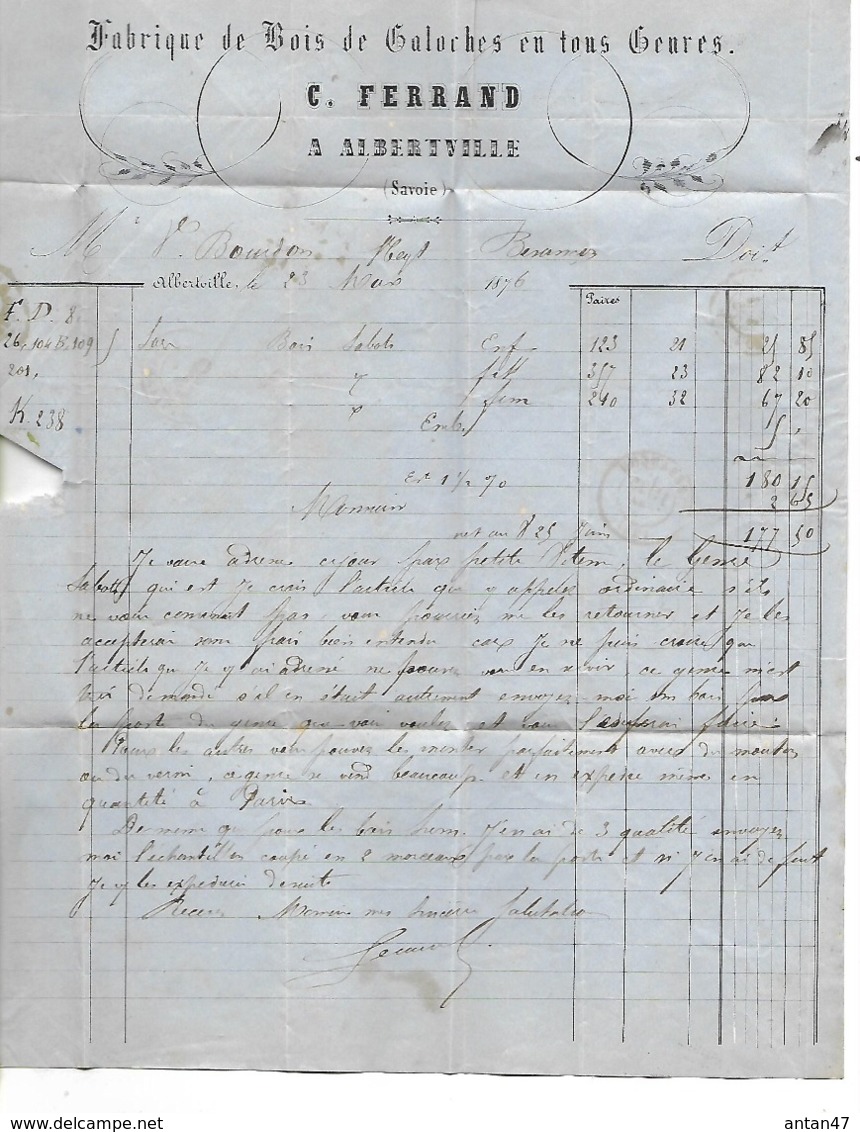 Fabrique de Bois de Galoches en tous Genres.
C. FERRAND
A ALBERTVILLE
(Savoie)
M Vve Bourdon Besançon Doit
Albertville, le 23 Mars 1876
Paires
F. D. 8.
26, 104 B. 109 Bois Sabots Enf 123 21 25 85
201, fill 357 23 82 10
K. 238 fem 210 32 67 20
Emb. 5 "
180 15
Est 1 1/2 % 2 65
Monsieur
net au 25 Juin 177 50
Je vous adresse ce jour par petite Vitesse, le Genre
Sabots qui est Je crois l'article que v appelez ordinaire s'ils
ne vous convenait pas, vous pourriez me les retourner et Je les
accepterai sans frais bien entendu car Je ne puis croire que
l'article que Je v ai adressé ne pouvez vous en servir ce genre m'est
très demandé s'il en était autrement envoyez-moi un bois par
la poste du genre que vous voulez et vous faire
Pour les autres vous pouvez les monter parfaitement avec du mouton
ou du verni, ce genre se vend beaucoup et en expedie même en
quantité à Paris
De même que pour les bois hom. J'en ai de 3 qualité envoyez
moi l'échantillon coupé en 2 morceaux par la poste et si J'en ai de fait
Je v les expedierai de suite
Recevez Monsieur mes sincères salutations
Ferrand
antan47